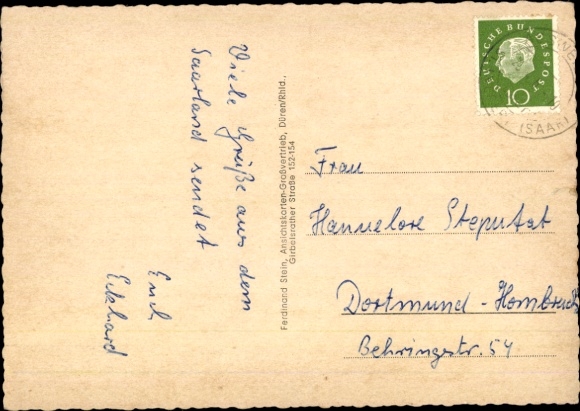 Viele Grüße aus dem
Saarland sendet
Euch
Eckhard
Ferdinand Stein, Ansichtskarten-Großvertrieb, Düren/Rhld.,
Girbelsrather Straße 152-154
DEUTSCHE BUNDESPOST
10
(SAAR)
Frau
Hannelore Steputat
Dortmund-Hombruch
Behringstr. 54